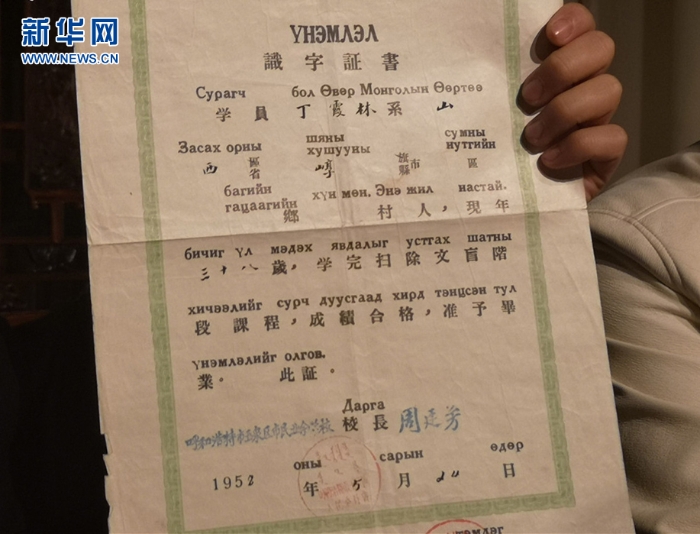 新华网
WWW.NEWS.CN
ҮНЭМЛЭЛ
識字証書
Сурагч бол Өвөр Монголын Өөртөө
学員 丁霞林系 山
Засах орны шяны сумны
хушууны нутгийн
西 區 崞 旗 區
省 縣市
багийн хүн мөн. Энэ жил настай.
гацаагийн
鄉 村人，現年
бичиг үл мэдэх явдалыг устгах шатны
三十八歲，学完扫除文盲階
хичээлийг сурч дуусгаад хирд тэнцсэн тул
段課程，成績合格，准予畢
үнэмлэлийг олгов.
業。 此証。
Дарга
呼和浩特市玉泉区市民业余学校 校長 周廷芳
оны сарын өдөр
1958 年 5 月 20 日